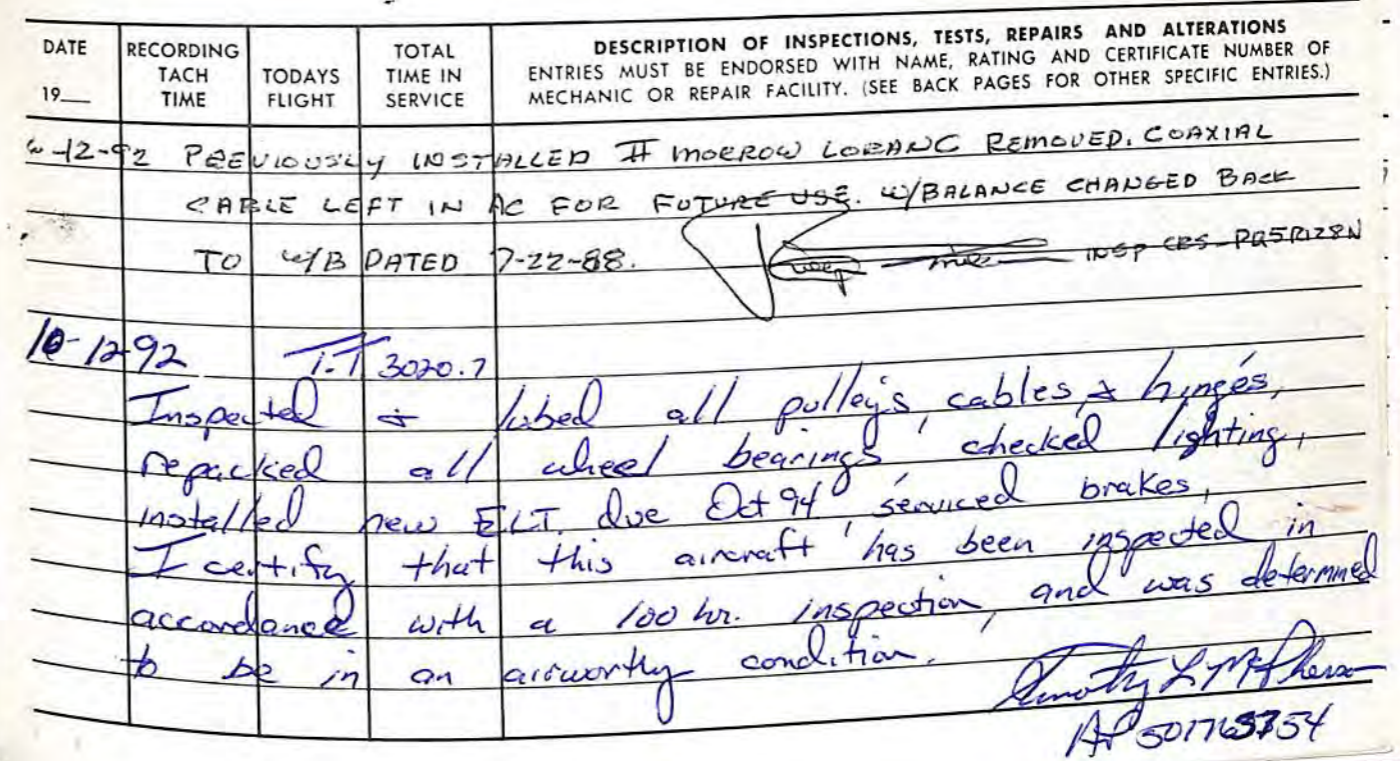 DATE
19__
RECORDING
TACH
TIME
TODAYS
FLIGHT
TOTAL
TIME IN
SERVICE
DESCRIPTION OF INSPECTIONS, TESTS, REPAIRS AND ALTERATIONS
ENTRIES MUST BE ENDORSED WITH NAME, RATING AND CERTIFICATE NUMBER OF
MECHANIC OR REPAIR FACILITY. (SEE BACK PAGES FOR OTHER SPECIFIC ENTRIES.)
6-12-92 PREVIOUSLY INSTALLED II MORROW LORANC REMOVED. COAXIAL
CABLE LEFT IN AC FOR FUTURE USE. W/BALANCE CHANGED BACK
TO W/B DATED 7-22-88. INSP CRS
10-12-92 T.T 3020.7
Inspected & lubed all pulleys, cables, & hinges,
repacked all wheel bearings, checked lighting,
installed new ELT. due Oct 94, serviced brakes,
I certify that this aircraft has been inspected in
accordance with a 100 hr. inspection, and was determined
to be in an airworthy condition.
Timothy L McPherson
AP 501765754